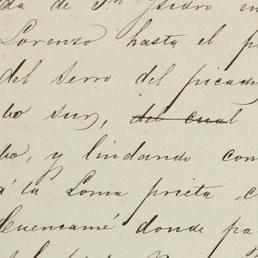 da de Sn Isidro en
Lorenzo hasta el p
del Serro del picad
bo sur, del cual
bo, y lindando con
á la Loma prieta c
Cuencamé donde pa